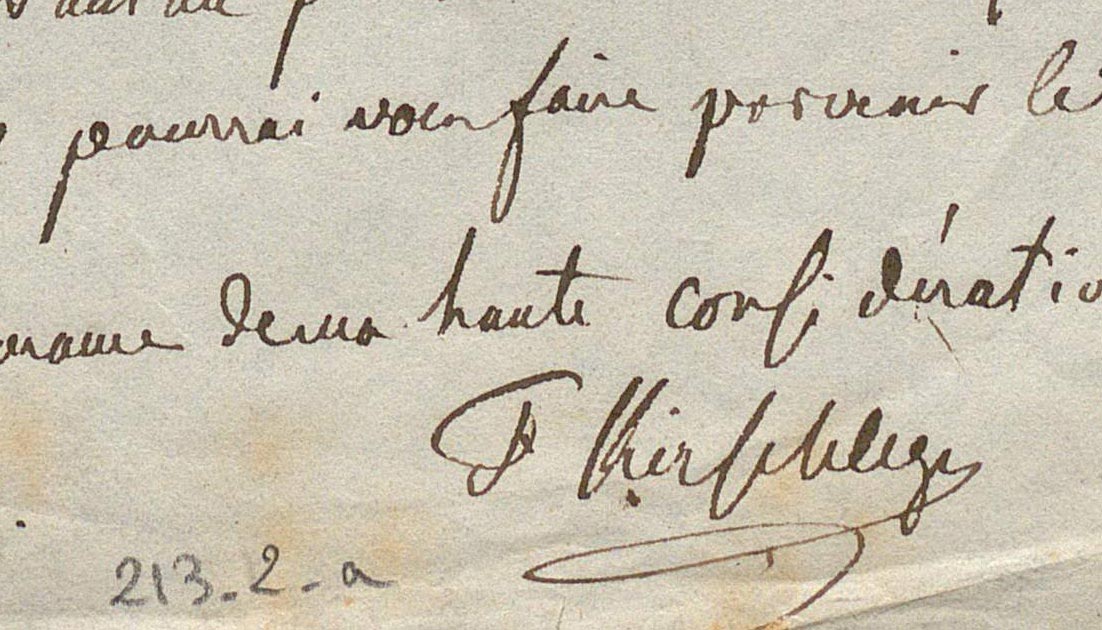 pourrai vous faire parvenir le
de ma haute considératio
F Kirschleger
213-2-a